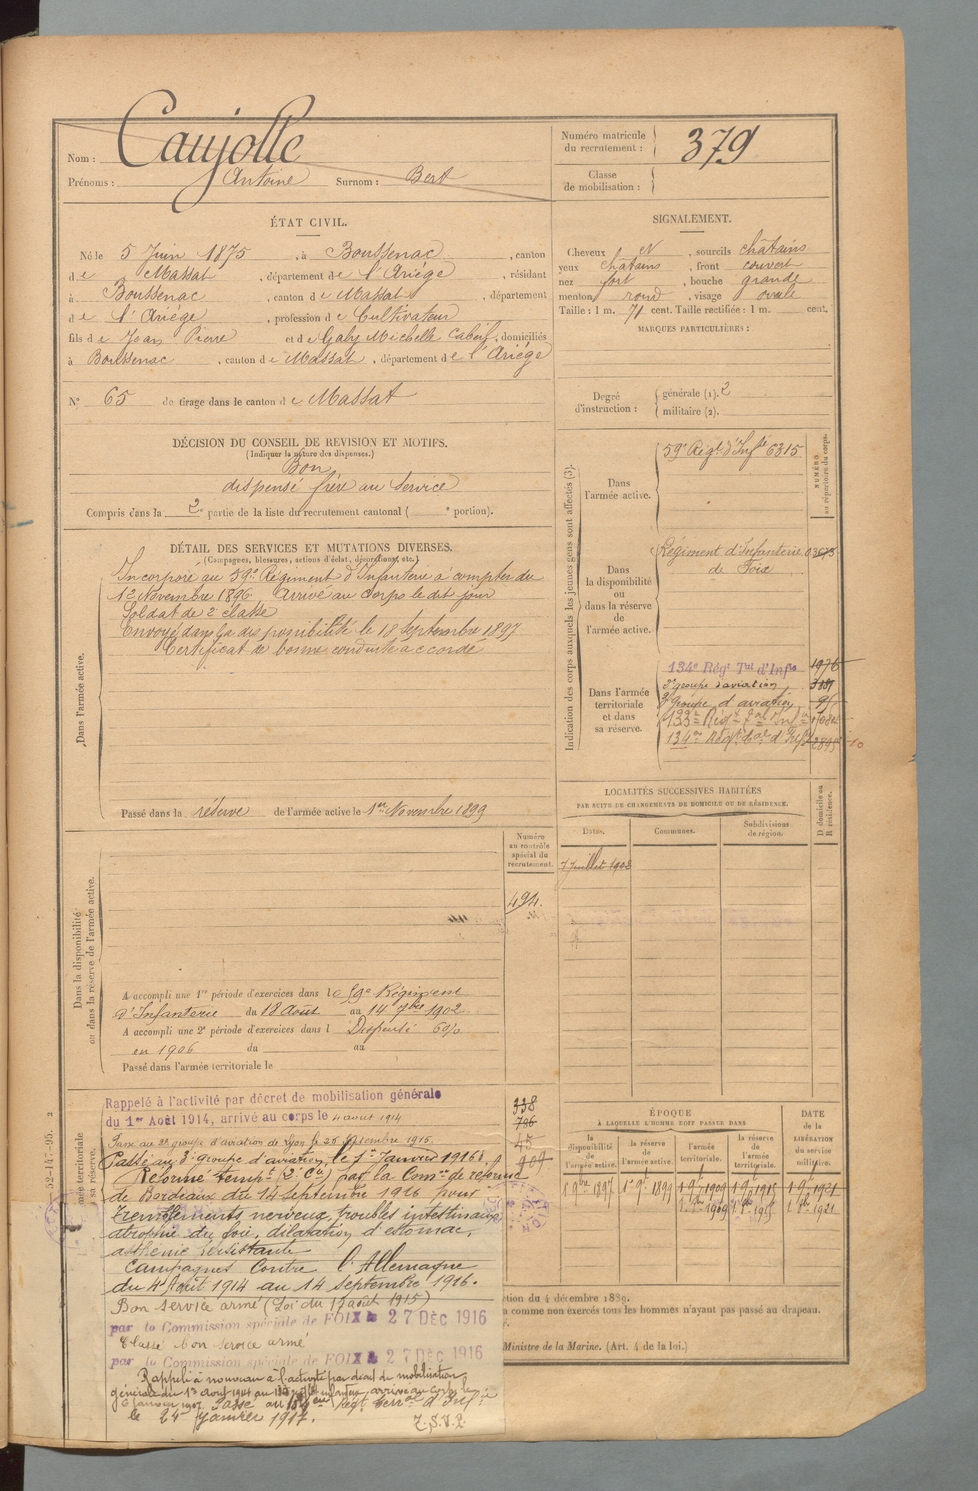 Nom : Caujolle
Prénoms : Antoine Surnom : Bert
Numéro matricule du recrutement : 379
Classe de mobilisation :
ÉTAT CIVIL.
Né le 5 Juin 1875, à Boussenac, canton
de Massat, département de l'Ariège, résidant
à Boussenac, canton de Massat, département
de l'Ariège, profession de Cultivateur
fils de Jean Pierre et de Galy Michelle Cabeil, domiciliés
à Boussenac, canton de Massat, département de l'Ariège
N° 65 de tirage dans le canton de Massat
SIGNALEMENT.
Cheveux N, sourcils châtains
yeux châtains, front couvert
nez fort, bouche grande
menton rond, visage ovale
Taille : 1 m. 71 cent. Taille rectifiée : 1 m. cent.
MARQUES PARTICULIÈRES :
Degré d'instruction : générale (1). 2
militaire (2).
DÉCISION DU CONSEIL DE REVISION ET MOTIFS.
(Indiquer la nature des dispenses.)
Bon
dispensé frère au service
Compris dans la 2e partie de la liste du recrutement cantonal ( e portion).
DÉTAIL DES SERVICES ET MUTATIONS DIVERSES.
(Campagnes, blessures, actions d'éclat, décorations, etc.)
Dans l'armée active.
Incorporé au 59e Régiment d'Infanterie à compter du
12 Novembre 1896 Arrivé au Corps le dit jour
Soldat de 2e classe
Envoyé dans la disponibilité le 18 Septembre 1897
Certificat de bonne conduite accordé
Passé dans la réserve de l'armée active le 1er Novembre 1899
Indication des corps auxquels les jeunes gens sont affectés (3).
NUMÉRO au répertoire du corps.
Dans l'armée active.
59e Régt d'Infie 6315
Dans la disponibilité ou dans la réserve de l'armée active.
Régiment d'Infanterie
de Foix
Dans l'armée territoriale et dans sa réserve.
134e Régt Tal d'Infie 1976
2e groupe d'aviation
3e Groupe d'aviation
133e Régt
134e Régt
LOCALITÉS SUCCESSIVES HABITÉES
PAR SUITE DE CHANGEMENTS DE DOMICILE OU DE RÉSIDENCE.
Dates. Communes. Subdivisions de région. D domicile ou R résidence.
7 Juillet 1902
Numéro au contrôle spécial du recrutement.
494
Dans la disponibilité ou dans la réserve de l'armée active.
A accompli une 1re période d'exercices dans le 59e Régiment
d'Infanterie du 18 Août au 14 7bre 1902
A accompli une 2e période d'exercices dans l Dispensé 60%
en 1906 du au
Passé dans l'armée territoriale le
Rappelé à l'activité par décret de mobilisation générale
du 1er Août 1914, arrivé au corps le 4 août 1914
Passé au 2e groupe d'aviation de Lyon le 26 septembre 1915.
Passé au 3e groupe d'aviation, le 1er Janvier 1916.
Réformé tempt (2e Cé) par la Comon de réforme
de Bordeaux du 14 septembre 1916 pour
tremblements nerveux, troubles intestinaux
atrophie du foie, dilatation d'estomac,
asthénie persistante
Campagnes Contre l'Allemagne
du 4 Août 1914 au 14 septembre 1916.
Bon service armé (Loi du 17 août 1915)
par la Commission spéciale de FOIX le 27 Déc 1916
Classé bon service armé
par la Commission spéciale de FOIX le 27 Déc 1916
Rappelé à nouveau à l'activité par décret de mobilisation
Passé au 134ème Régt terral d'Infie
le 24 Janvier 1917.
T.S.V.P.
338
786
45
909
ÉPOQUE
À LAQUELLE L'HOMME DOIT PASSER DANS
la disponibilité de l'armée active. la réserve de l'armée active. l'armée territoriale. la réserve de l'armée territoriale.
DATE de la LIBÉRATION du service militaire.
1 9bre 1897 1 9t 1899 1 9t 1909 1 9t 1915 1 9t 1921
52-147-95.
ction du 4 décembre 1889.
a comme non exercés tous les hommes n'ayant pas passé au drapeau.
Ministre de la Marine. (Art. 4 de la loi.)